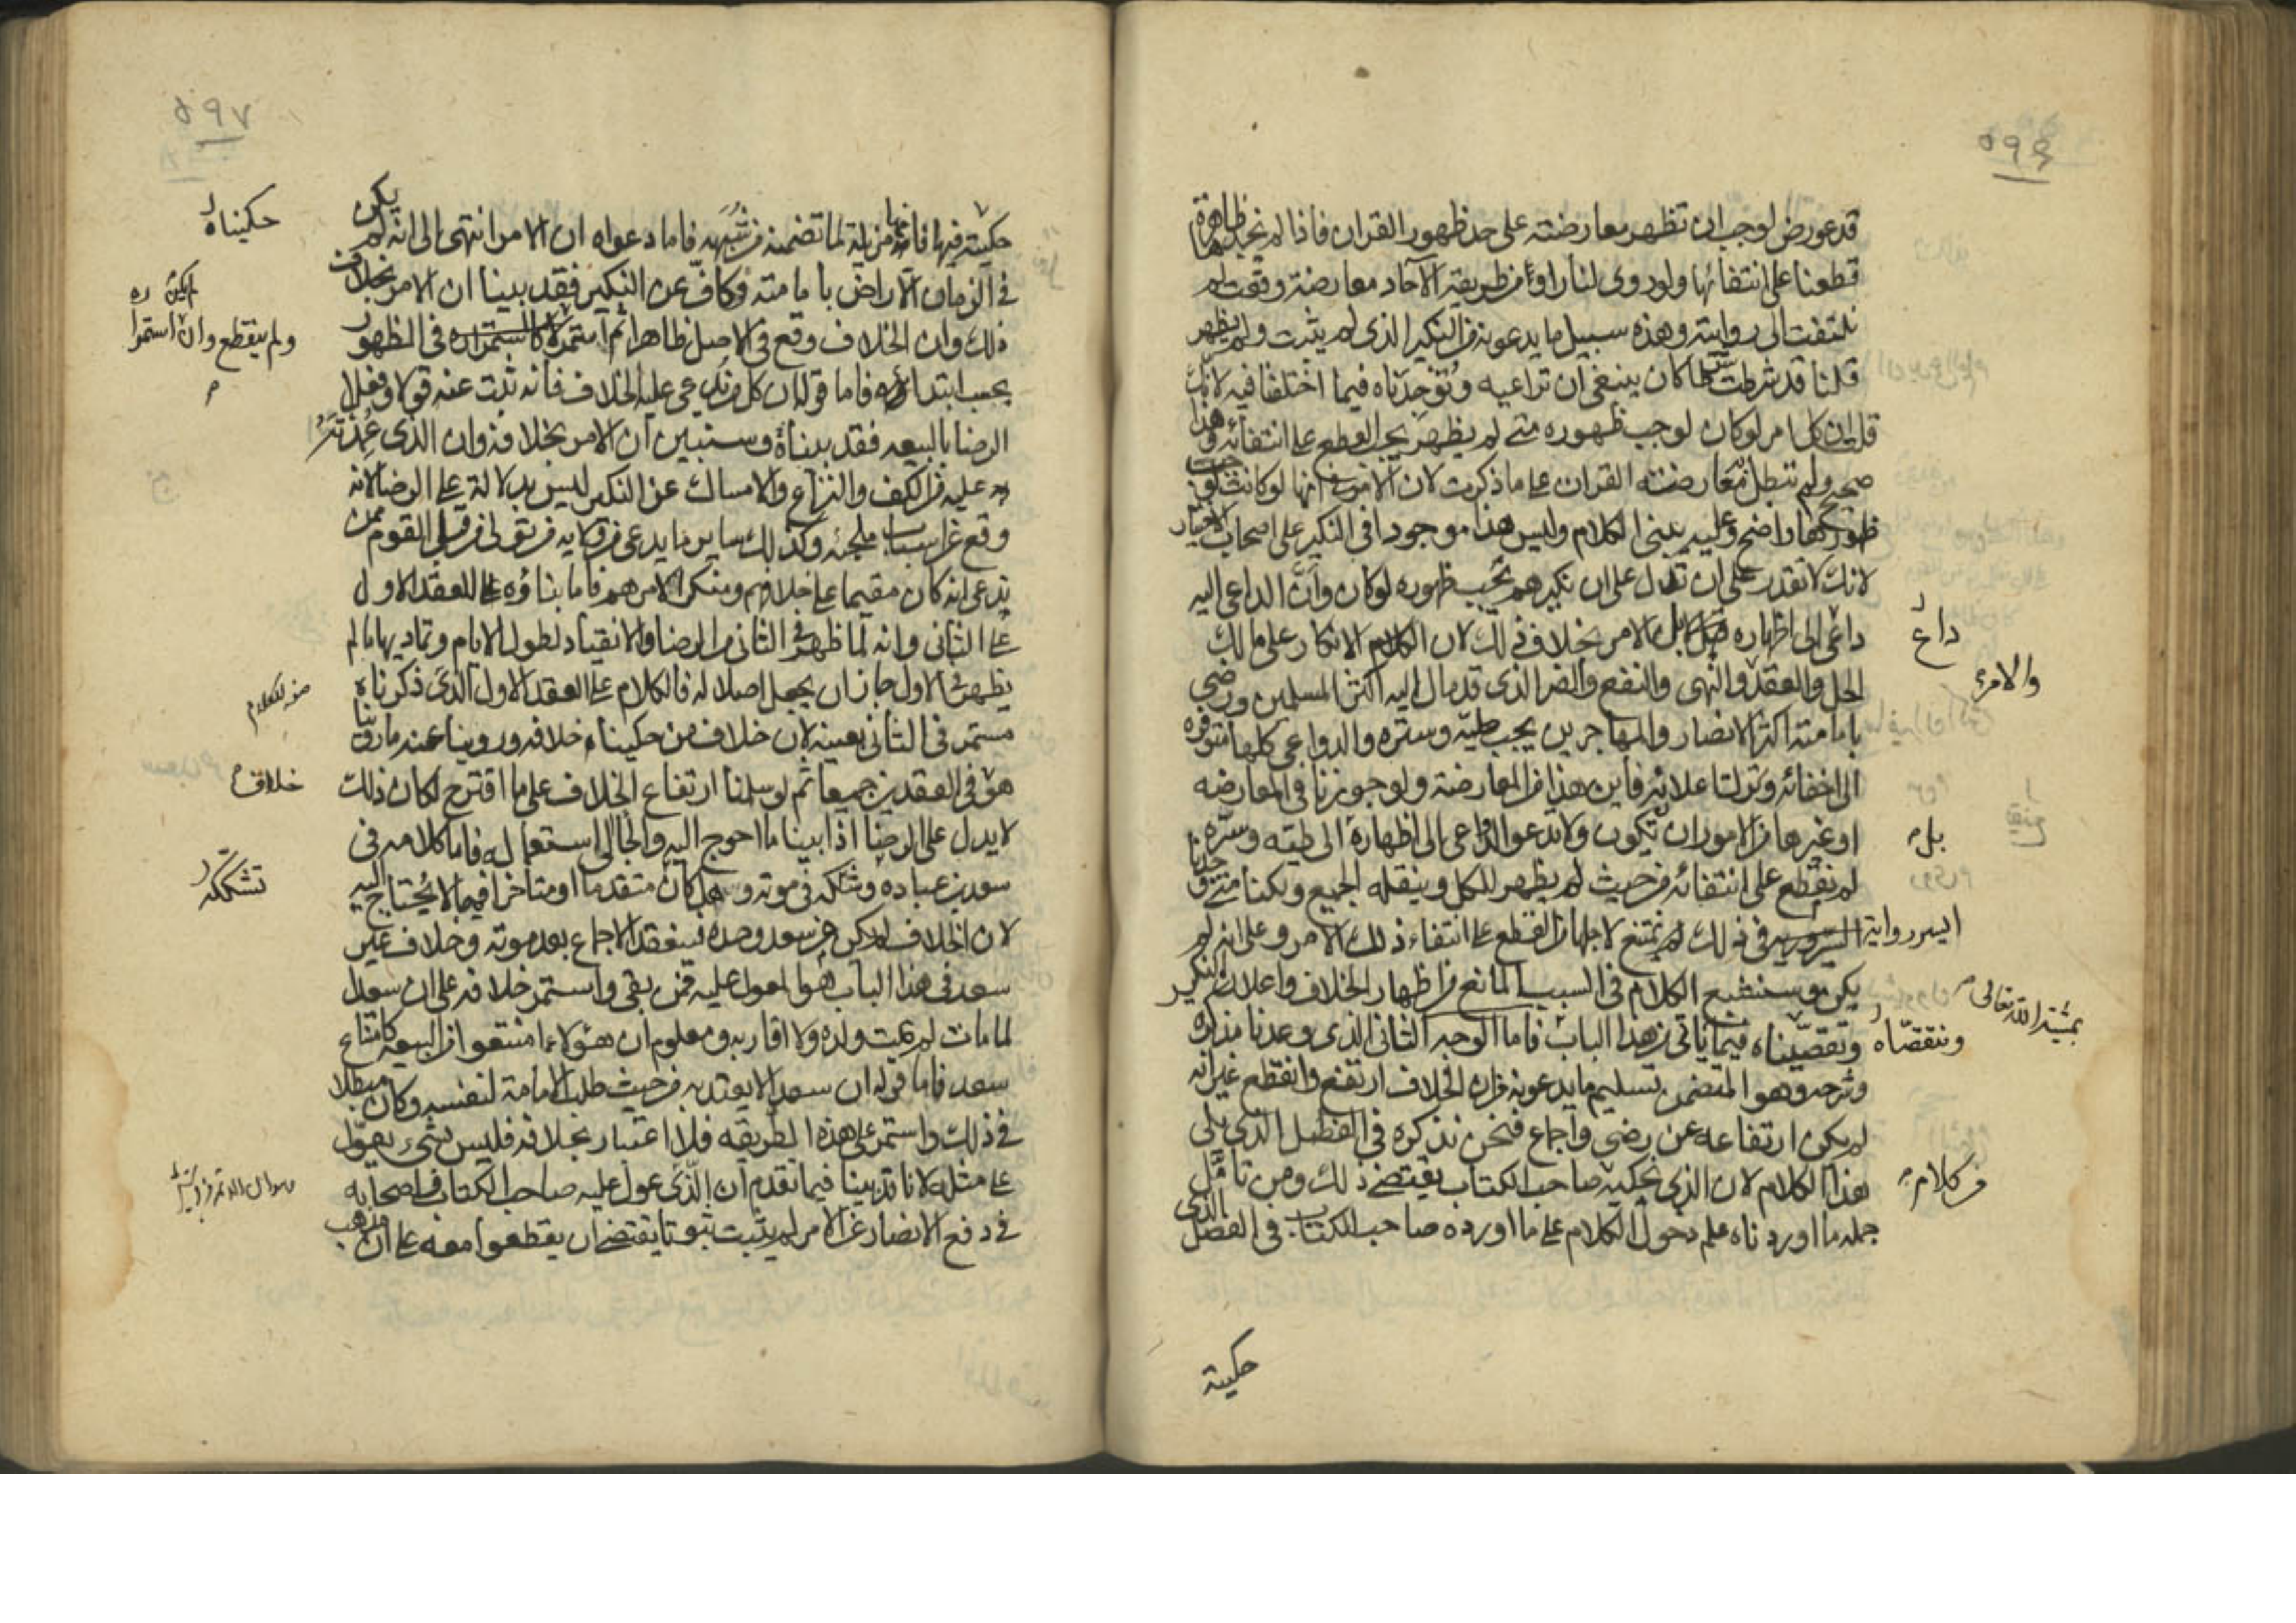 ٥٩٤
قد عورض لوجب ان تظهر معارضته على حد ظهور القران فاذا لم نجدها ظاهرة
قطعنا على انتفائها ولو روى لنا راو من طريقة الآحاد معارضة وقعت لم
نلتفت الى روايته وهذه سبيل ما يدعونه من النكير الذى لم يثبت ولم يظهر
قلنا قد شرطت شرطا كان ينبغى ان تراعيه وتوجدناه فيما اختلفنا فيه لانك
قلت ان كل امر لو كان لوجب ظهوره متى لم يظهر يجب القطع على انتفائه وهذا
صحيح ولم تبطل معارضته القران على ما ذكرت لان الامر فى انها لو كانت لوجب
ظهورها واضح وعليه بنى الكلام وليس هذا موجودا فى النكير على اصحاب الاختيار
لانك لا تقدر على ان تدل على ان نكيرهم يجب ظهوره لو كان وان الداعى اليه
داعى الى اظهاره بل الامر بخلاف ذلك لان الانكار على مالك
الحل والعقد والنهى والنفع والضر الذى قد مال اليه اكثر المسلمين ورضى
بامامته اكثر الانصار والمهاجرين يجب طيه وستره والدواعى كلها متوفره
الى اخفائه وترك اعلانه فاين هذا من المعارضة ولو جوزنا فى المعارضه
او غيرها من الامور ان تكون ولا تدعو الدواعى الى اظهاره الى طيه وستره
لم نقطع على انتفائه من حيث لم يظهر للكل وينقله الجميع ولكنا متى وجدنا
ايسر رواية فى ذلك لم نمتنع لاجلها من القطع على انتفاء ذلك الامر وعلى انه لم
يكن وسنشبع الكلام فى السبب المانع من اظهار الخلاف واعلان النكير
ونتقصيناه فيما ياتى من هذا الباب فاما الوجه الثانى الذى وعدنا بذكره
وشرحه وهو المتضمن تسليم ما يدعونه من ان الخلاف ارتفع وانقطع غير انه
لم يكن ارتفاعه عن رضى واجماع فنحن نذكره فى الفصل الذى يلى
هذا الكلام لان الذى نحكيه صاحب الكتاب يقتضى ذلك ومن تامل
جمله ما اوردناه علم دخول الكلام على ما اورده صاحب الكتاب فى الفصل الذى
داع
والامر
بل
بمشية الله تعالى
ونتقصاه
من كلام
حكيته
٥٩٧
حكيته فيها فانها مزيلة لما تضمنه من شبهه فاما دعواه ان الامر انتهى الى انه لم يكن
فى الزمان الا راض بامامته وكاف عن النكير فقد بينا ان الامر بخلاف
ذلك وان الخلاف وقع فى الاصل ظاهرا ثم استمر لا كاستمراره فى الظهور
بحسب ابتدائه فاما قوله ان كل من يدعى عليه الخلاف فانه ثبت عنه قولا وفعلا
الرضا بالبيعه فقد بيناه وسنبين ان الامر بخلافه وان الذى
عليه من الكف والنزاع والامساك عن النكير ليس بدلالة على الرضا لانه
وقع عن اسباب ملجئه وكذلك ساير ما يدعى من ولايه فريق من القوم ممن
يدعى انه كان مقيما على خلافهم ومنكرا لامرهم فاما بناؤه على العقد الاول
على الثانى وانه لما ظهر فى الثانى من الرضا والانقياد لطول الايام وتماديها ما لم
يظهر فى الاول جاز ان يجعل اصلا له فالكلام على العقد الاول الذى ذكرناه
مستمر فى الثانى بعينه لان خلاف من حكينا خلافه وروينا عنه ما روينا
هو فى العقدين جميعا ثم لو سلمنا ارتفاع الخلاف على ما اقترح لكان ذلك
لا يدل على الرضا اذا بينا ما احوج اليه والجا الى استعماله فاما كلامه فى
سعد بن عباده وشكه فى موته وهل كان متقدما او متاخرا فيما لا يحتاج اليه
لان الخلاف لم يكن من سعد وحده فينعقد الاجماع بعد موته وخلاف غير
سعد فى هذا الباب هو المعول عليه ممن بقى واستمر خلافه على ان سعدا
لما مات لم يمت ولده ولا اقاربه ومعلوم ان هؤلاء امتنعوا من البيعه كامتناع
سعد فاما قوله ان سعدا لا يعتد به من حيث طلب الامامة لنفسه وكان مبطلا
فى ذلك واستمر على هذه الطريقه فلا اعتبار بخلافه فليس بشىء يعول
على مثله لانا قد بينا فيما تقدم ان الذى عول عليه صاحب الكتاب واصحابه
فى دفع الانصار عن الامر لم يثبت ثبوتا يقتضى ان يقطعوا معه على ان مذهب
حكيناه
ولم ينقطع وان استمرا
خلاف
تشككه